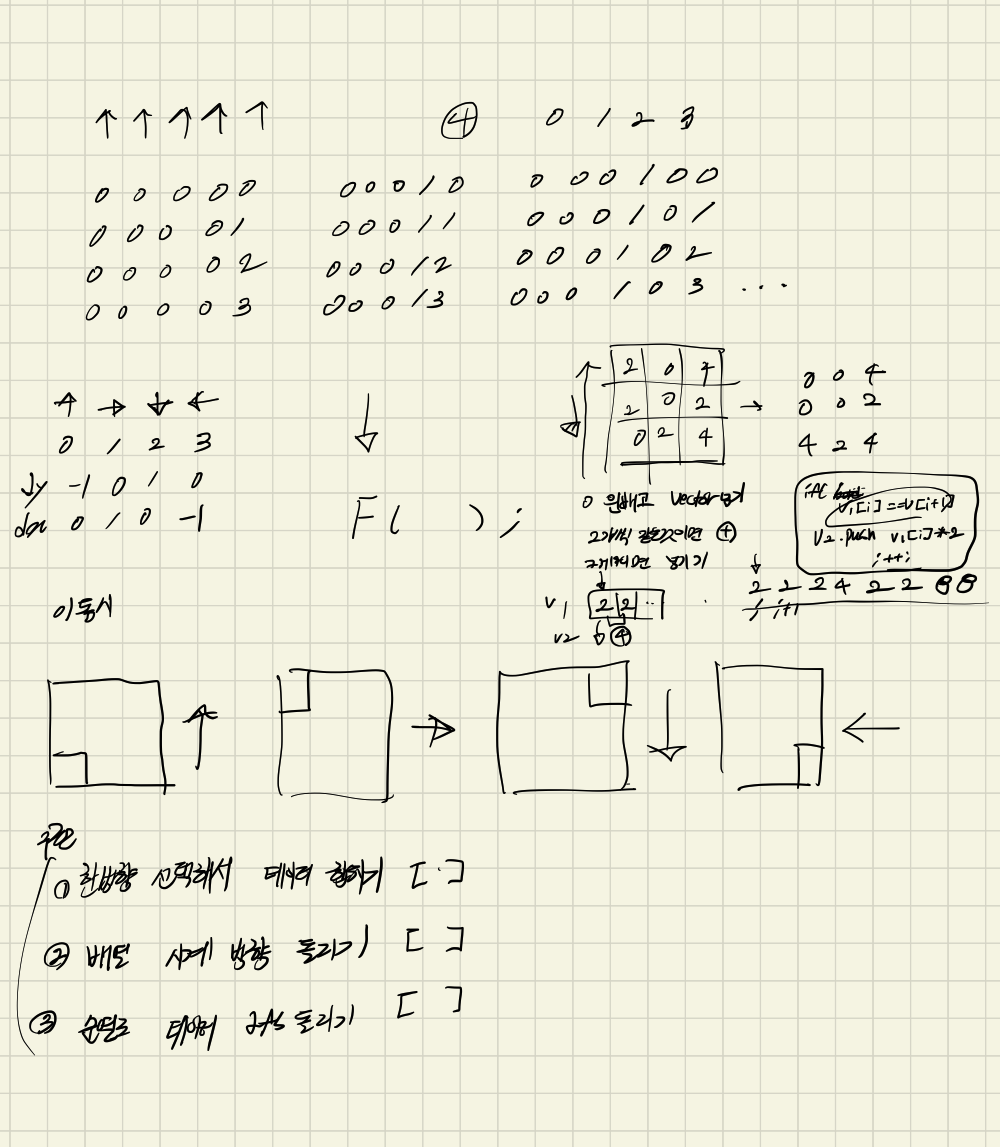 ↑ ↑ ↑ ↑ ↑
④ 0 1 2 3
0 0 0 0 0
0 0 0 0 1
0 0 0 0 2
0 0 0 0 3
0 0 0 1 0
0 0 0 1 1
0 0 0 1 2
0 0 0 1 3
0 0 0 1 0 0
0 0 0 1 0 1
0 0 0 1 0 2
0 0 0 1 0 3 ...
↑ → ↓ ←
0 1 2 3
dy -1 0 1 0
dx 0 1 0 -1
F( );
2 0 4
2 0 2
0 2 4
→
0 0 4
0 0 2
4 2 4
0 vector 넣기
2개씩 ⊕
넘기기
v1 2 2 ..
v2 ④
if(
v1[i]==v[i+1]
v2.push v1[i]*2
i++;
2 2 2 4 2 2 8 8
i i+1
이동시
↑ → ↓ ←
구현
① 한방향 선택해서 데이터 합치기 [ ]
② 배열 시계 방향 돌리기 [ ]
③ 순열로 데이터 돌리기 [ ]